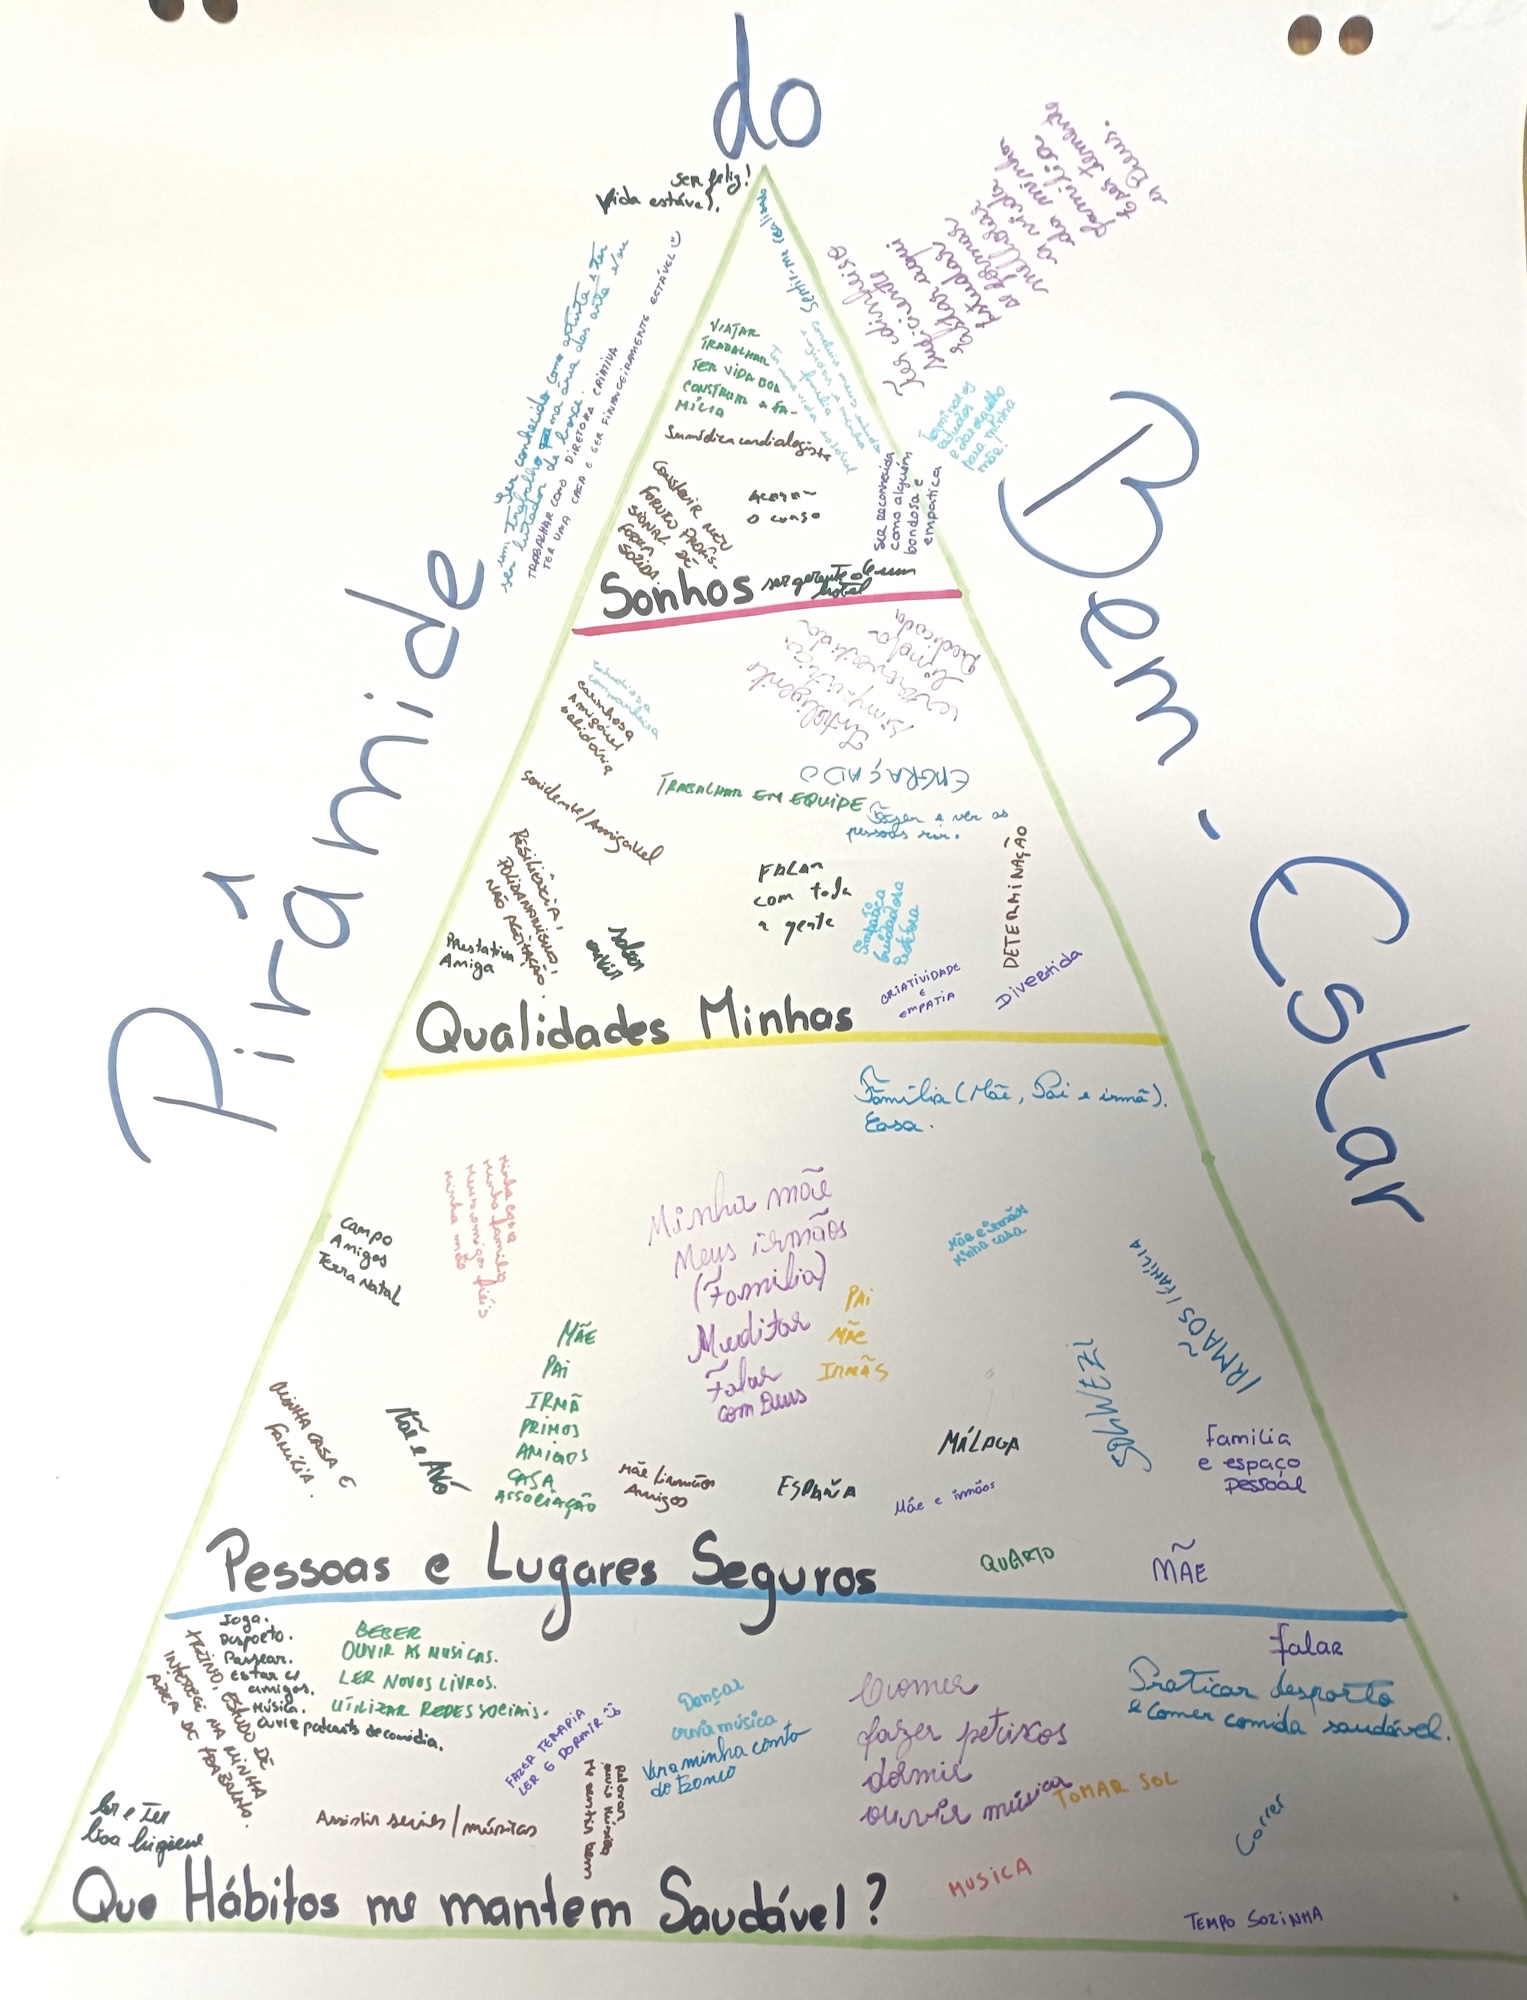 Pirâmide
do
Bem-Estar
ser feliz!
Vida estável.
Ser conhecido como artista e ter
um trabalho na área das artes e/ou
ser lutador de boxe.
TRABALHAR COMO DIRETORA CRIATIVA
TER UMA CASA E SER FINANCEIRAMENTE ESTÁVEL :)
Sentir-me realizado
Ter dinheiro
suficiente
estar aqui
estudar
me formar
melhorar
a vida
da minha
família
a Deus.
Terminar os
estudos
e dar orgulho
para minha
mãe!
VIAJAR
TRABALHAR
TER VIDA BOA
CONSTRUIR A FA-
MÍLIA
concluir meus estudos
e ajudar a minha
família
Ter uma vida estável
Ser médica cardiologista
CONSTRUIR MEU
FUTURO PROFIS-
SIONAL DE
FORMA
SÓLIDA.
Acabar
o curso
Ser reconhecida
como alguém
bondosa e
empática
Sonhos
ser gerente de um
hotel
Estudiosa
companheira
carinhosa
Amigável
solidária
Inteligente
simpático
extrovertida
Dedicada
ENGRAÇADO
TRABALHAR EM EQUIPE
Fazer e ver as
pessoas rir.
Sorridente/Amigável
RESILIÊNCIA,
NÃO ACEITAÇÃO.
Prestativa
Amiga
saber
ouvir
FALAR
com toda
a gente
Simpática
Cuidadosa
DETERMINAÇÃO
CRIATIVIDADE
E
EMPATIA
Divertida
Qualidades Minhas
Família (Mãe, Pai e irmã).
Casa.
Campo
Amigos
Terra Natal
Minha casa
Minha família
Meus amigos fiéis
Minha mãe
Minha mãe
Meus irmãos
(Família)
Meditar
Falar
com Deus
Mãe e irmãos
Minha casa
PAI
MÃE
IRMÃS
IRMÃOS / FAMÍLIA
MÃE
PAI
IRMÃ
PRIMOS
AMIGOS
CASA
ASSOCIAÇÃO
MINHA CASA E
FAMÍLIA.
Mãe e Avó
Mãe/irmãos
Amigos
ESPAÑA
MÁLAGA
Mãe e irmãos
Familia
e espaço
pessoal
QUARTO
MÃE
Pessoas e Lugares Seguros
Joga.
Desporto.
Passear.
Estar c/
amigos.
Música.
Ouvir podcasts de comédia.
TREINO, ESTUDO DE
INTERESSE NA MINHA
ÁREA DE TRABALHO.
BEBER
OUVIR AS MUSICAS.
LER NOVOS LIVROS.
UTILIZAR REDES SOCIAIS.
FAZER TERAPIA
LER E DORMIR :)
Dançar
ouvir música
Ver a minha conta
do Banco
Comer
fazer petiscos
dormir
ouvir música
falar
Praticar desporto
e comer comida saudável.
TOMAR SOL
Correr
Ler e Ter
boa higiene
Assistir series/músicas
ouvir música
Me sentir bem
MUSICA
TEMPO SOZINHA
Que Hábitos me mantem Saudável?